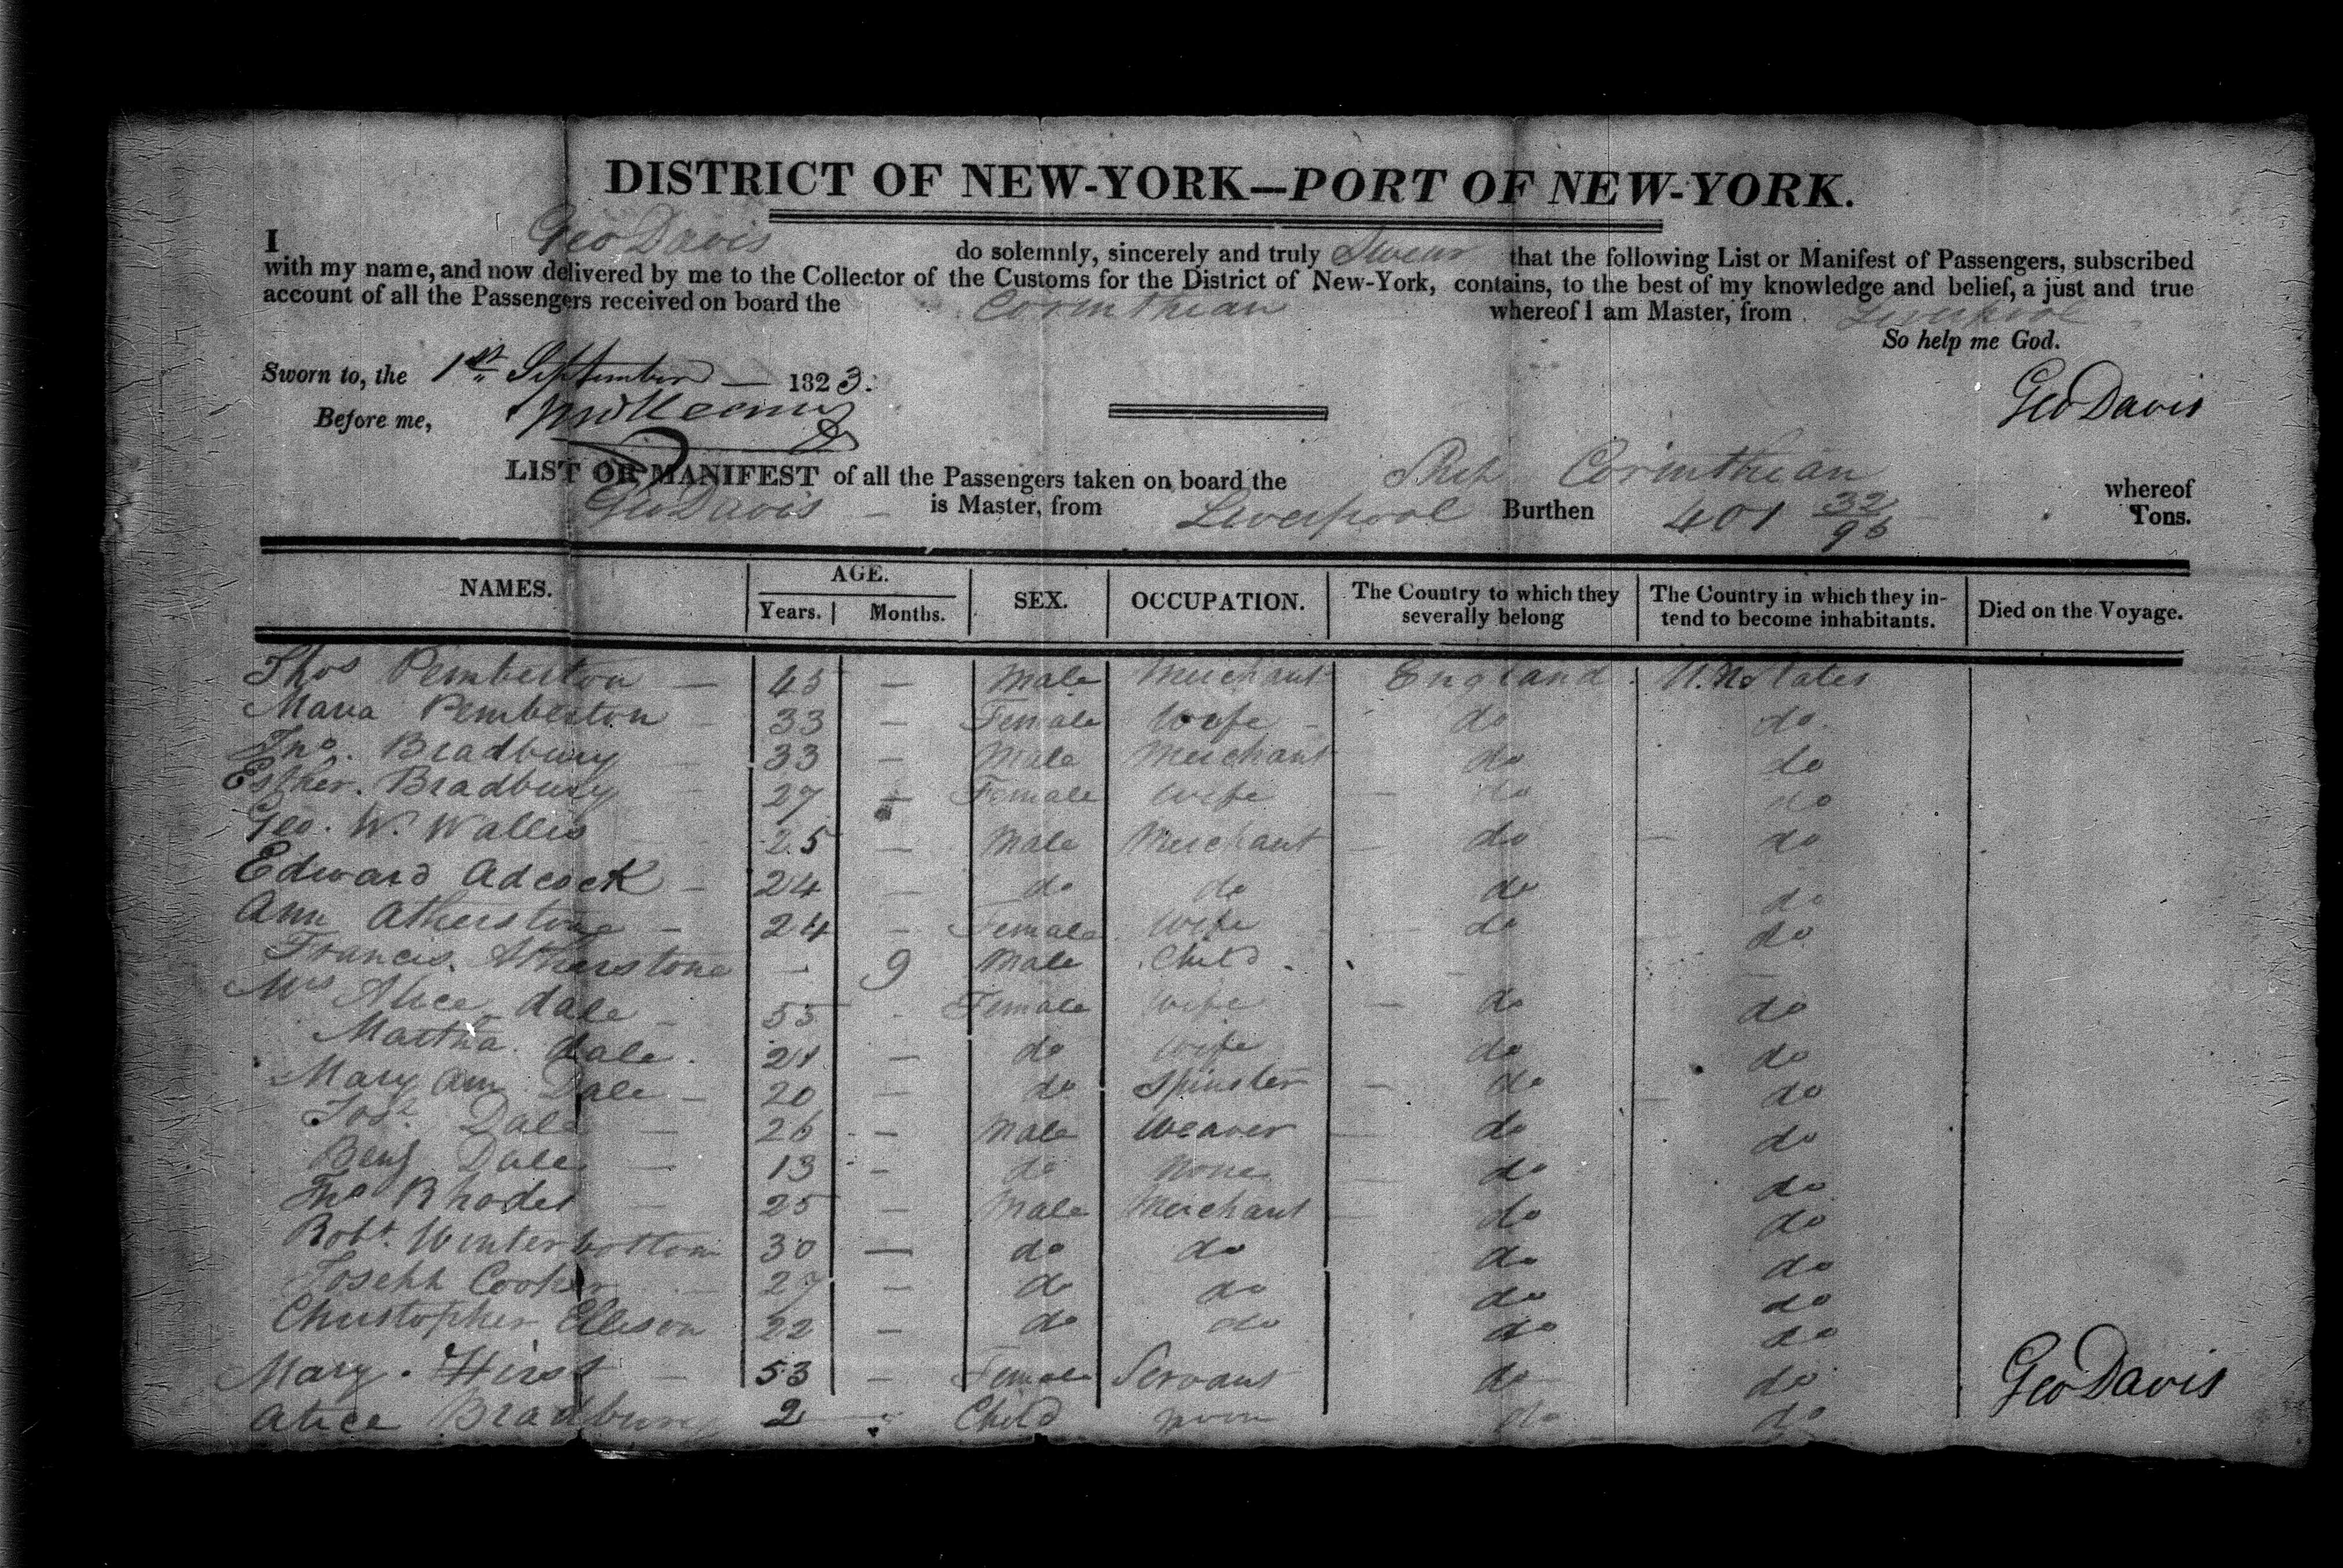 DISTRICT OF NEW-YORK—PORT OF NEW-YORK.
I Geo Davis do solemnly, sincerely and truly Swear that the following List or Manifest of Passengers, subscribed
with my name, and now delivered by me to the Collector of the Customs for the District of New-York, contains, to the best of my knowledge and belief, a just and true
account of all the Passengers received on board the Corinthian whereof I am Master, from Liverpool
So help me God.
Sworn to, the 1st September — 1823.
Geo Davis
Before me,
LIST OR MANIFEST of all the Passengers taken on board the Ship Corinthian whereof
Geo Davis — is Master, from Liverpool Burthen 401 32/95 Tons.
NAMES. AGE. Years. Months. SEX. OCCUPATION. The Country to which they severally belong The Country in which they intend to become inhabitants. Died on the Voyage.
Thos Pemberton — 45 — Male Merchant England U. States
Maria Pemberton — 33 — Female Wife — do do.
Jno. Bradbury 33 — Male Merchant do do
Esther. Bradbury 27 — Female Wife — do do
Geo. W. Wallis 25 — Male Merchant — do — do
Edward Adcock — 24 — do do do do
Ann Atherstone — 24 — Female Wife do do
Francis. Atherstone — 9 Male Child. — —
Mrs Alice Dale — 55 - Female Wife — do do
Martha. Dale. 21 — do Wife do do
Mary Ann Dale — 20 — do Spinster — do — do
Josh. Dale — 26 — Male Weaver — do do
Benj Dale — 13 — do None do do
Jno Rhodes 25 — Male Merchant do do
Robt. Winterbottom 30 — do do do do
Joseph Cooper 27 — do do do do
Christopher Ellison 22 — do do do do
Mary. Hirst — 53 — Female Servant do do
Alice Bradbury 2 — Child do do
Geo Davis